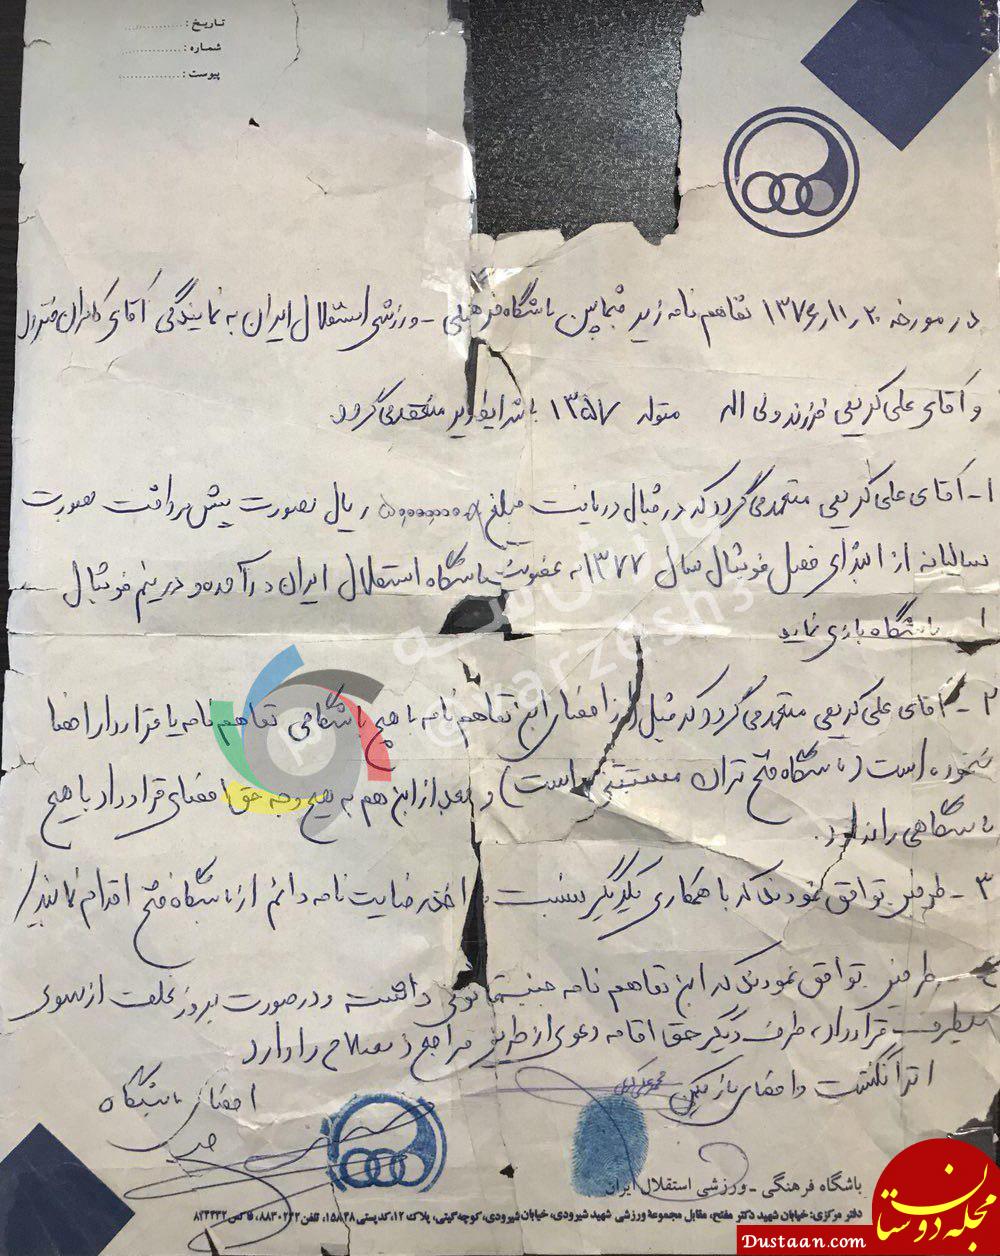 تاریخ : ................
شماره : ................
پیوست : ................
در مورخه ۱۳۷۶ر۱۱ر۲۰ تفاهم نامه زیر فیمابین باشگاه فرهنگی - ورزشی استقلال ایران به نمایندگی آقای کامران
و آقای علی کریمی فرزند ولی اله متولد ۱۳۵۷ با شرایط زیر منعقد می گردد
۱- آقای علی کریمی متعهد می گردد که در قبال دریافت مبلغ ریال بصورت پیش پرداخت بصورت
سالیانه از ابتدای فصل فوتبال سال ۱۳۷۷ به عضویت باشگاه استقلال ایران درآمده و در تیم فوتبال
باشگاه بازی نماید
۲- آقای علی کریمی متعهد می گردد که قبل از امضای این تفاهم نامه با هیچ باشگاهی تفاهم نامه یا قرارداد امضا
ننموده است (باشگاه فتح تهران مستثنی است) و بعد از این هم به هیچ وجه حق امضای قرارداد با هیچ
باشگاهی را ندارد.
۳- طرفین توافق نمودند که با همکاری یکدیگر نسبت به اخذ رضایت نامه دائم از باشگاه فتح اقدام نمایند
۴- طرفین توافق نمودند که این تفاهم نامه داشته و در صورت بروز تخلف از سوی
یکطرف قرارداد، طرف دیگر حق اقامه دعوی از طریق مراجع ذیصلاح را دارد
اثر انگشت و امضای بازیکن
محمد علی کریمی
امضای باشگاه
باشگاه فرهنگی - ورزشی استقلال ایران
دفتر مرکزی: خیابان شهید دکتر مفتح، مقابل مجموعه ورزشی شهید شیرودی، خیابان شیرودی، کوچه گیتی، پلاک ۱۲، کدپستی ۱۵۸۳۸، تلفن ۸۸۳۰۲۴۲، فاکس ۸۲۴۴۳۲
ورزش سه
@varzesh3
مجله دوستان
Dustaan.com